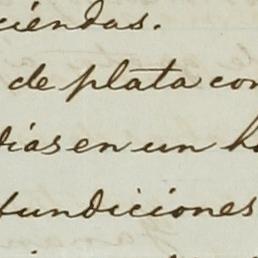 ciendas.
de plata con
dias en un h
fundiciones